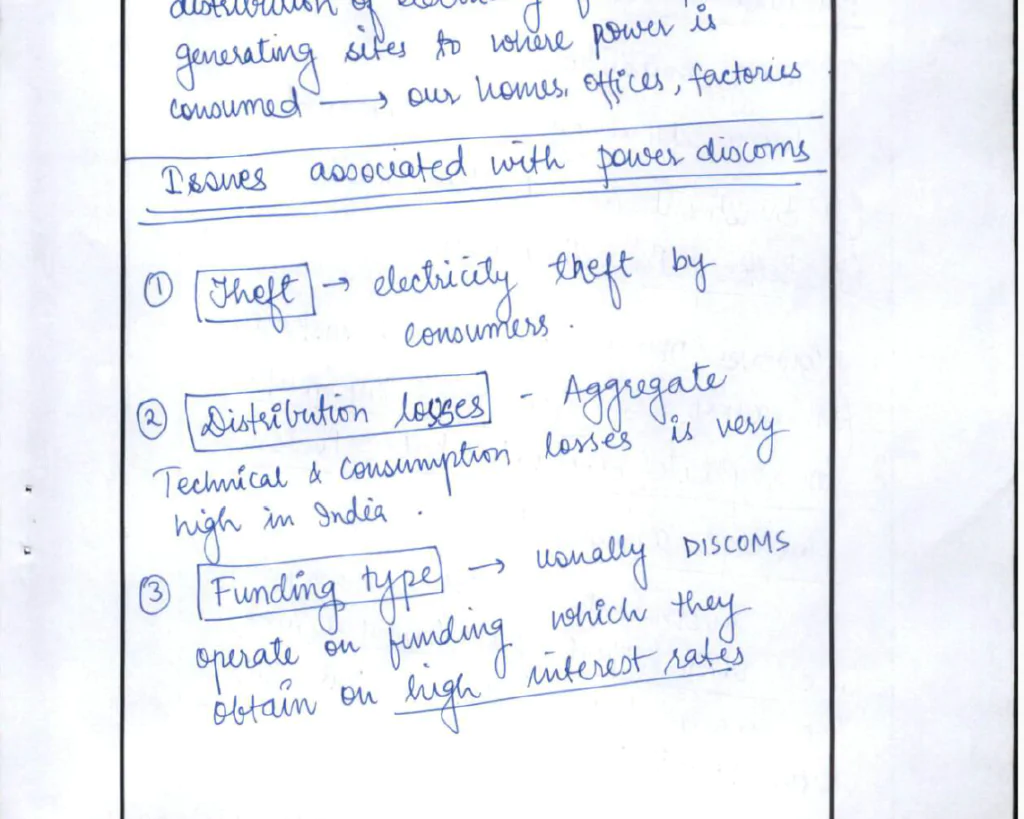 distribution of
generating sites to where power is
consumed → our homes, offices, factories
Issues associated with power discoms
① Theft → electricity theft by
consumers.
② Distribution losses - Aggregate
Technical & Consumption losses is very
high in India.
③ Funding type → usually DISCOMS
operate on funding which they
obtain on high interest rates